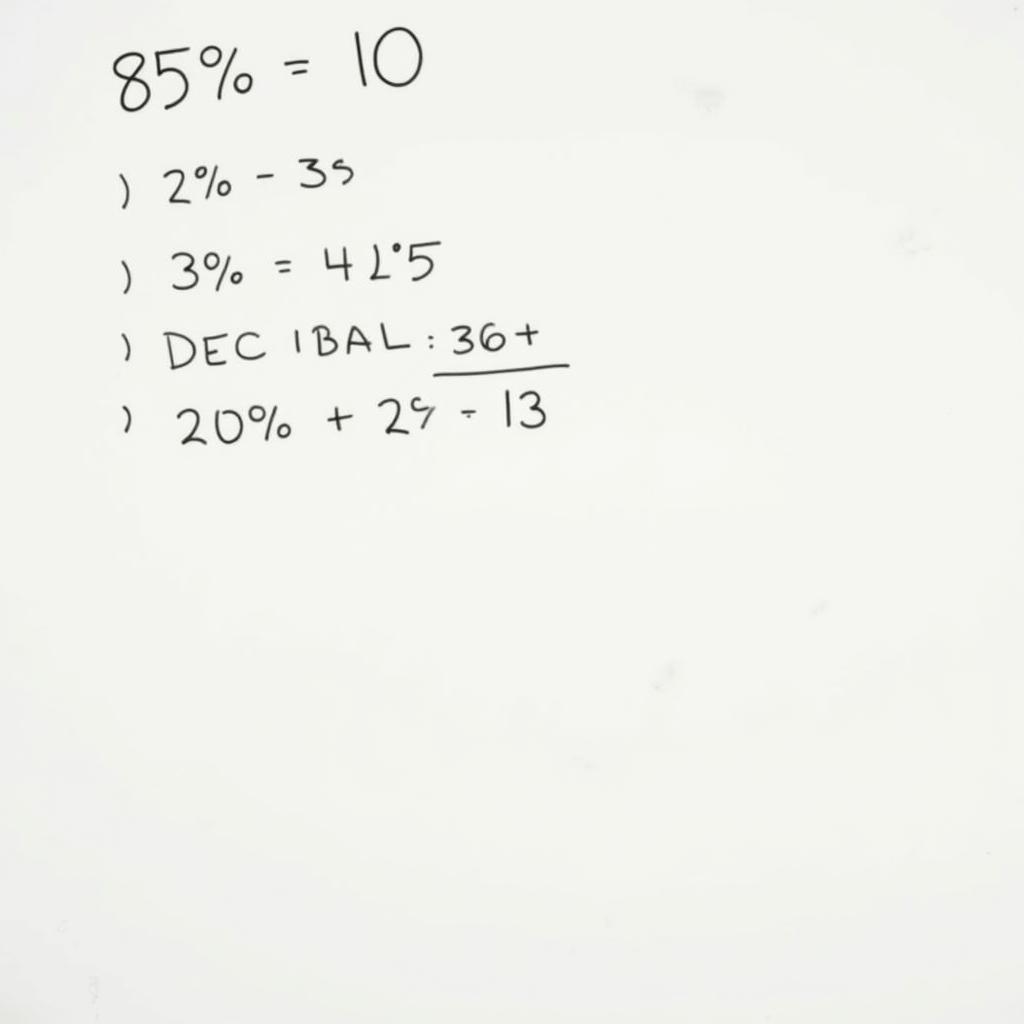 85% = 10
) 2% - 3s
) 3% = 4 L°5
) DEC IBAL: 36+
) 20% + 2 ÷ 13